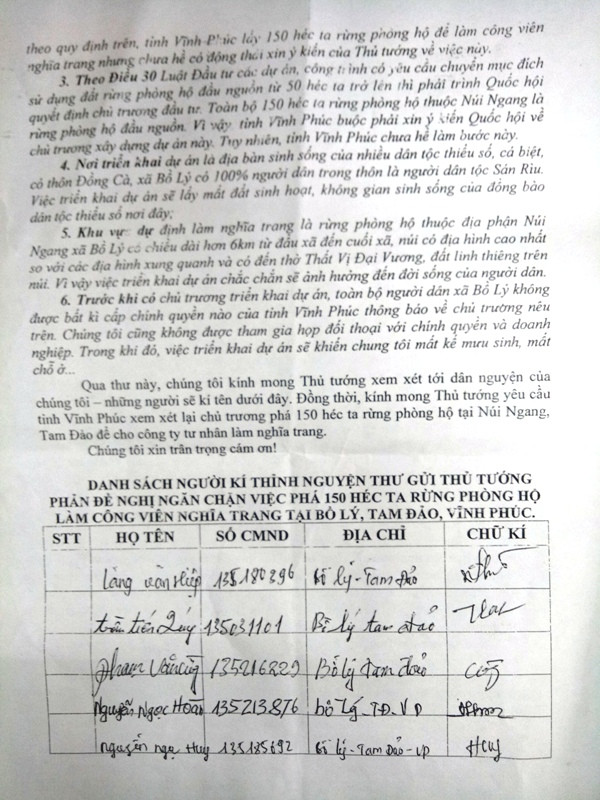 theo quy định trên, tỉnh Vĩnh Phúc lấy 150 héc ta rừng phòng hộ để làm công viên
nghĩa trang nhưng chưa hề có động thái xin ý kiến của Thủ tướng về việc này.
3. Theo Điều 30 Luật Đầu tư các dự án, công trình có yêu cầu chuyển mục đích
sử dụng đất rừng phòng hộ đầu nguồn từ 50 héc ta trở lên thì phải trình Quốc hội
quyết định chủ trương đầu tư. Toàn bộ 150 héc ta rừng phòng hộ thuộc Núi Ngang là
rừng phòng hộ đầu nguồn. Vì vậy tỉnh Vĩnh Phúc buộc phải xin ý kiến Quốc hội về
chủ trương xây dựng dự án này. Tuy nhiên, tỉnh Vĩnh Phúc chưa hề làm bước này.
4. Nơi triển khai dự án là địa bàn sinh sống của nhiều dân tộc thiểu số, cá biệt,
có thôn Đồng Cà, xã Bồ Lý có 100% người dân trong thôn là người dân tộc Sán Rìu.
Việc triển khai dự án sẽ lấy mất đất sinh hoạt, không gian sinh sống của đồng bào
dân tộc thiểu số nơi đây;
5. Khu vực dự định làm nghĩa trang là rừng phòng hộ thuộc địa phận Núi
Ngang xã Bồ Lý có chiều dài hơn 6km từ đầu xã đến cuối xã, núi có địa hình cao nhất
so với các địa hình xung quanh và có đền thờ Thất Vị Đại Vương, đất linh thiêng trên
núi. Vì vậy việc triển khai dự án chắc chắn sẽ ảnh hưởng đến đời sống của người dân.
6. Trước khi có chủ trương triển khai dự án, toàn bộ người dân xã Bồ Lý không
được bất kì cấp chính quyền nào của tỉnh Vĩnh Phúc thông báo về chủ trương nêu
trên. Chúng tôi cũng không được tham gia họp đối thoại với chính quyền và doanh
nghiệp. Trong khi đó, việc triển khai dự án sẽ khiến chung tôi mất kế mưu sinh, mất
chỗ ở...
Qua thư này, chúng tôi kính mong Thủ tướng xem xét tới dân nguyện của
chúng tôi – những người sẽ kí tên dưới đây. Đồng thời, kính mong Thủ tướng yêu cầu
tỉnh Vĩnh Phúc xem xét lại chủ trương phá 150 héc ta rừng phòng hộ tại Núi Ngang,
Tam Đảo để cho công ty tư nhân làm nghĩa trang.
Chúng tôi xin trân trọng cám ơn!
DANH SÁCH NGƯỜI KÍ THỈNH NGUYỆN THƯ GỬI THỦ TƯỚNG
PHẢN ĐỀ NGHỊ NGĂN CHẶN VIỆC PHÁ 150 HÉC TA RỪNG PHÒNG HỘ
LÀM CÔNG VIÊN NGHĨA TRANG TẠI BỒ LÝ, TAM ĐẢO, VĨNH PHÚC.
STT HỌ TÊN SỐ CMND ĐỊA CHỈ CHỮ KÍ
Văn Hiệp 135180396 Bồ lý - Tam Đảo
trần tiến Quý 135031101 Bồ lý tam đảo
phạm Văn 135216229 Bồ lý tam đảo
Nguyễn Ngọc Hoàn 135213876 bồ Lý. TĐ. VP
nguyễn ngọc Huy 135185692 Bồ lý - Tam Đảo - VP Huy